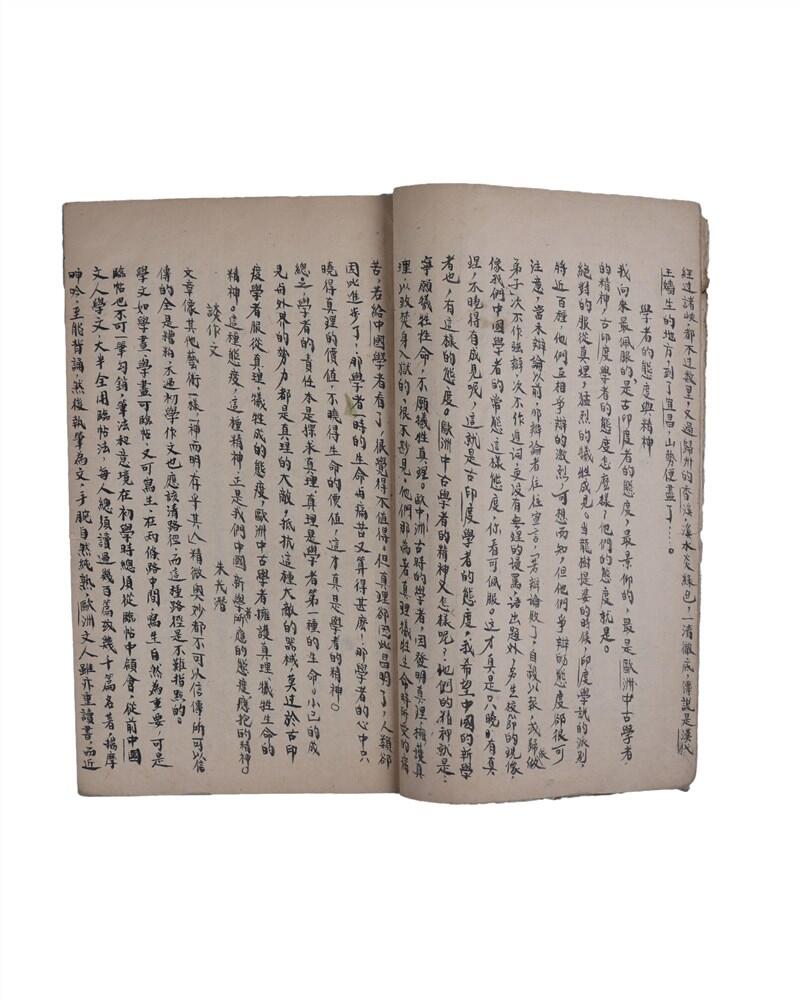 經過諸峽,都不過數里,又過歸州的香溪,溪水炎綠色,一清徹底,傳說是漢代
王嬙生的地方,到了宜昌,山勢便盡了……。
學者的態度與精神
我向來最佩服的,是古印度學者的態度,最景仰的,最是歐洲中古學者
的精神,古印度學者的態度怎麼樣,他們的態度就是。
絕對的服從真理,猛烈的犧牲成見。當龍樹提婆的時候,印度學說的派別
將近百種,他們互相爭辯的激烈,可想而知,但他們爭辯的態度卻很可
注意,當未辯論以前,那辯論者往往宣言,若辯論敗了,自殺以報,或歸做
弟子,次不作強辯,次不作遁詞,更沒有無理的謾罵,語出題外,另生枝節的現像,
像我們中國學者的常態,這樣態度,你看可佩服。這才真是只曉有真
理,不曉得有成見呢,這就是古印度學者的態度,我希望中國的新學
者也,有這樣的態度。歐洲中古學者的精神又怎樣呢?他們的精神就是:
寧願犧牲性命,不願犧牲真理。歐中洲古時的學者,因發明真理,擁護真
理,以致焚身入獄的,很不尠見,他們那為着真理犧牲生命時所受的痛
苦,若給中國學者看了,很覺得不值得。但真理卻因此昌明了,人類卻
因此進步了,那學者一時的生命曲痛苦又算得甚麼!那學者的心中只
曉得真理的價值,不曉得生命的價值,這才真是學者的精神。
總之,學者的責任本是探求真理,真理是學者第一種的生命。小己的成
見與外界的勢力都是真理的大敵,抵抗這種大敵的器械,莫過於古印
度學者服從真理,犧牲成的態度,歐洲中古學者擁護真理犧牲生命的
精神。這種態度、這種精神,正是我們中國新學者所應的態度應抱的精神。
談作文
朱光潛
文章像其他藝術一樣,神而明存乎其人精微奧妙都不可以信傳,所可以信
傳的全是糟粕,不過初學作文也應該清路徑,而這種路徑是不難指點的。
學文如學畫,學畫可臨帖,又可寫生,在兩條路中間,寫生自然為重要,可是
臨帖也不可一筆勾銷,筆法和意境在初學時總須從臨帖中領會,從前中國
文人學文,大半全用臨帖法,每人總須讀過幾百篇或幾十篇名著,揣摩
呻吟,至能背誦,然後執筆為文,手腕自然純熟,歐洲文人雖亦重讀書,而近